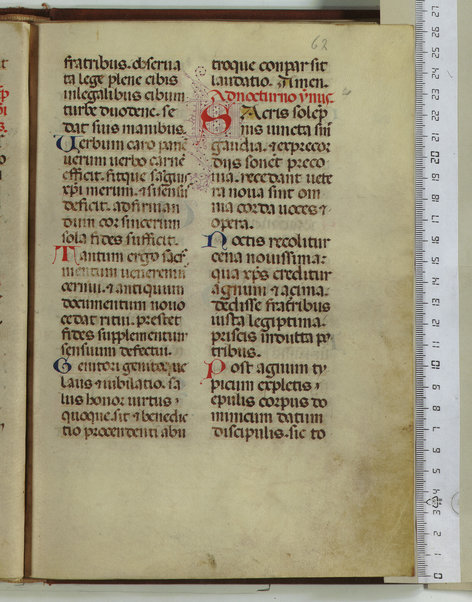 62
fratribus. obserua
ta lege plene cibis
inlegalibus cibum
turbe duodene. se
dat suis manibus.
Verbum caro pane
uerum uerbo carne
efficit. fitque sanguis
xpi merum. & si sensus
deficit. ad firman
dum cor sincerum
sola fides sufficit.
Tantum ergo sacr
mentum ueneremur
cernui. & antiquum
documentum nouo
cedat ritui. prestet
fides supplementum
sensuum defectui.
Genitori genitoque
laus & iubilatio. sa
lus honor uirtus
quoque. sit & benedic
tio procedenti ab u
troque compar sit
laudatio. Amen.
Ad nocturno ymnus.
Sacris solep
niis iuncta sint
gaudia. & ex precor
diis sonet preco
nia. recedant uete
ra noua sint om
nia corda uoces &
opera.
Noctis recolitur
cena nouissima.
qua xps creditur
agnum & acima
dedisse fratribus
iusta legiptima.
priscis indulta pa
tribus.
Post agnum ty
picum expletis
epulis corpus do
minicum datum
discipulis. sic to